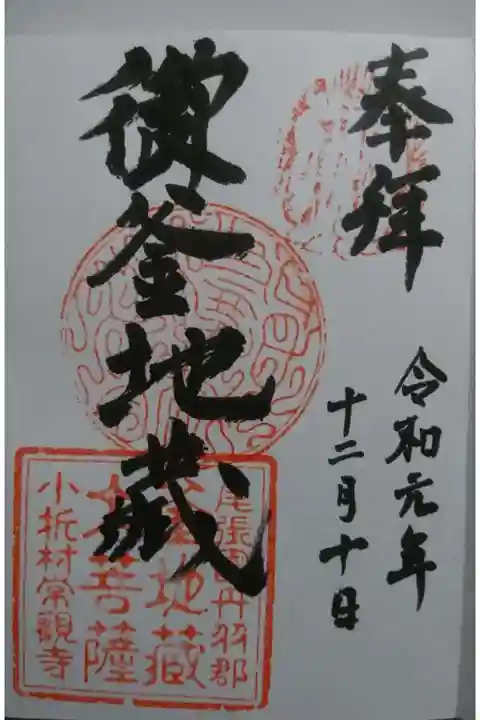 奉拝
令和元年
十二月十日
御釜地蔵
尾張国丹羽郡
釜地蔵
大菩薩
小折村常觀寺